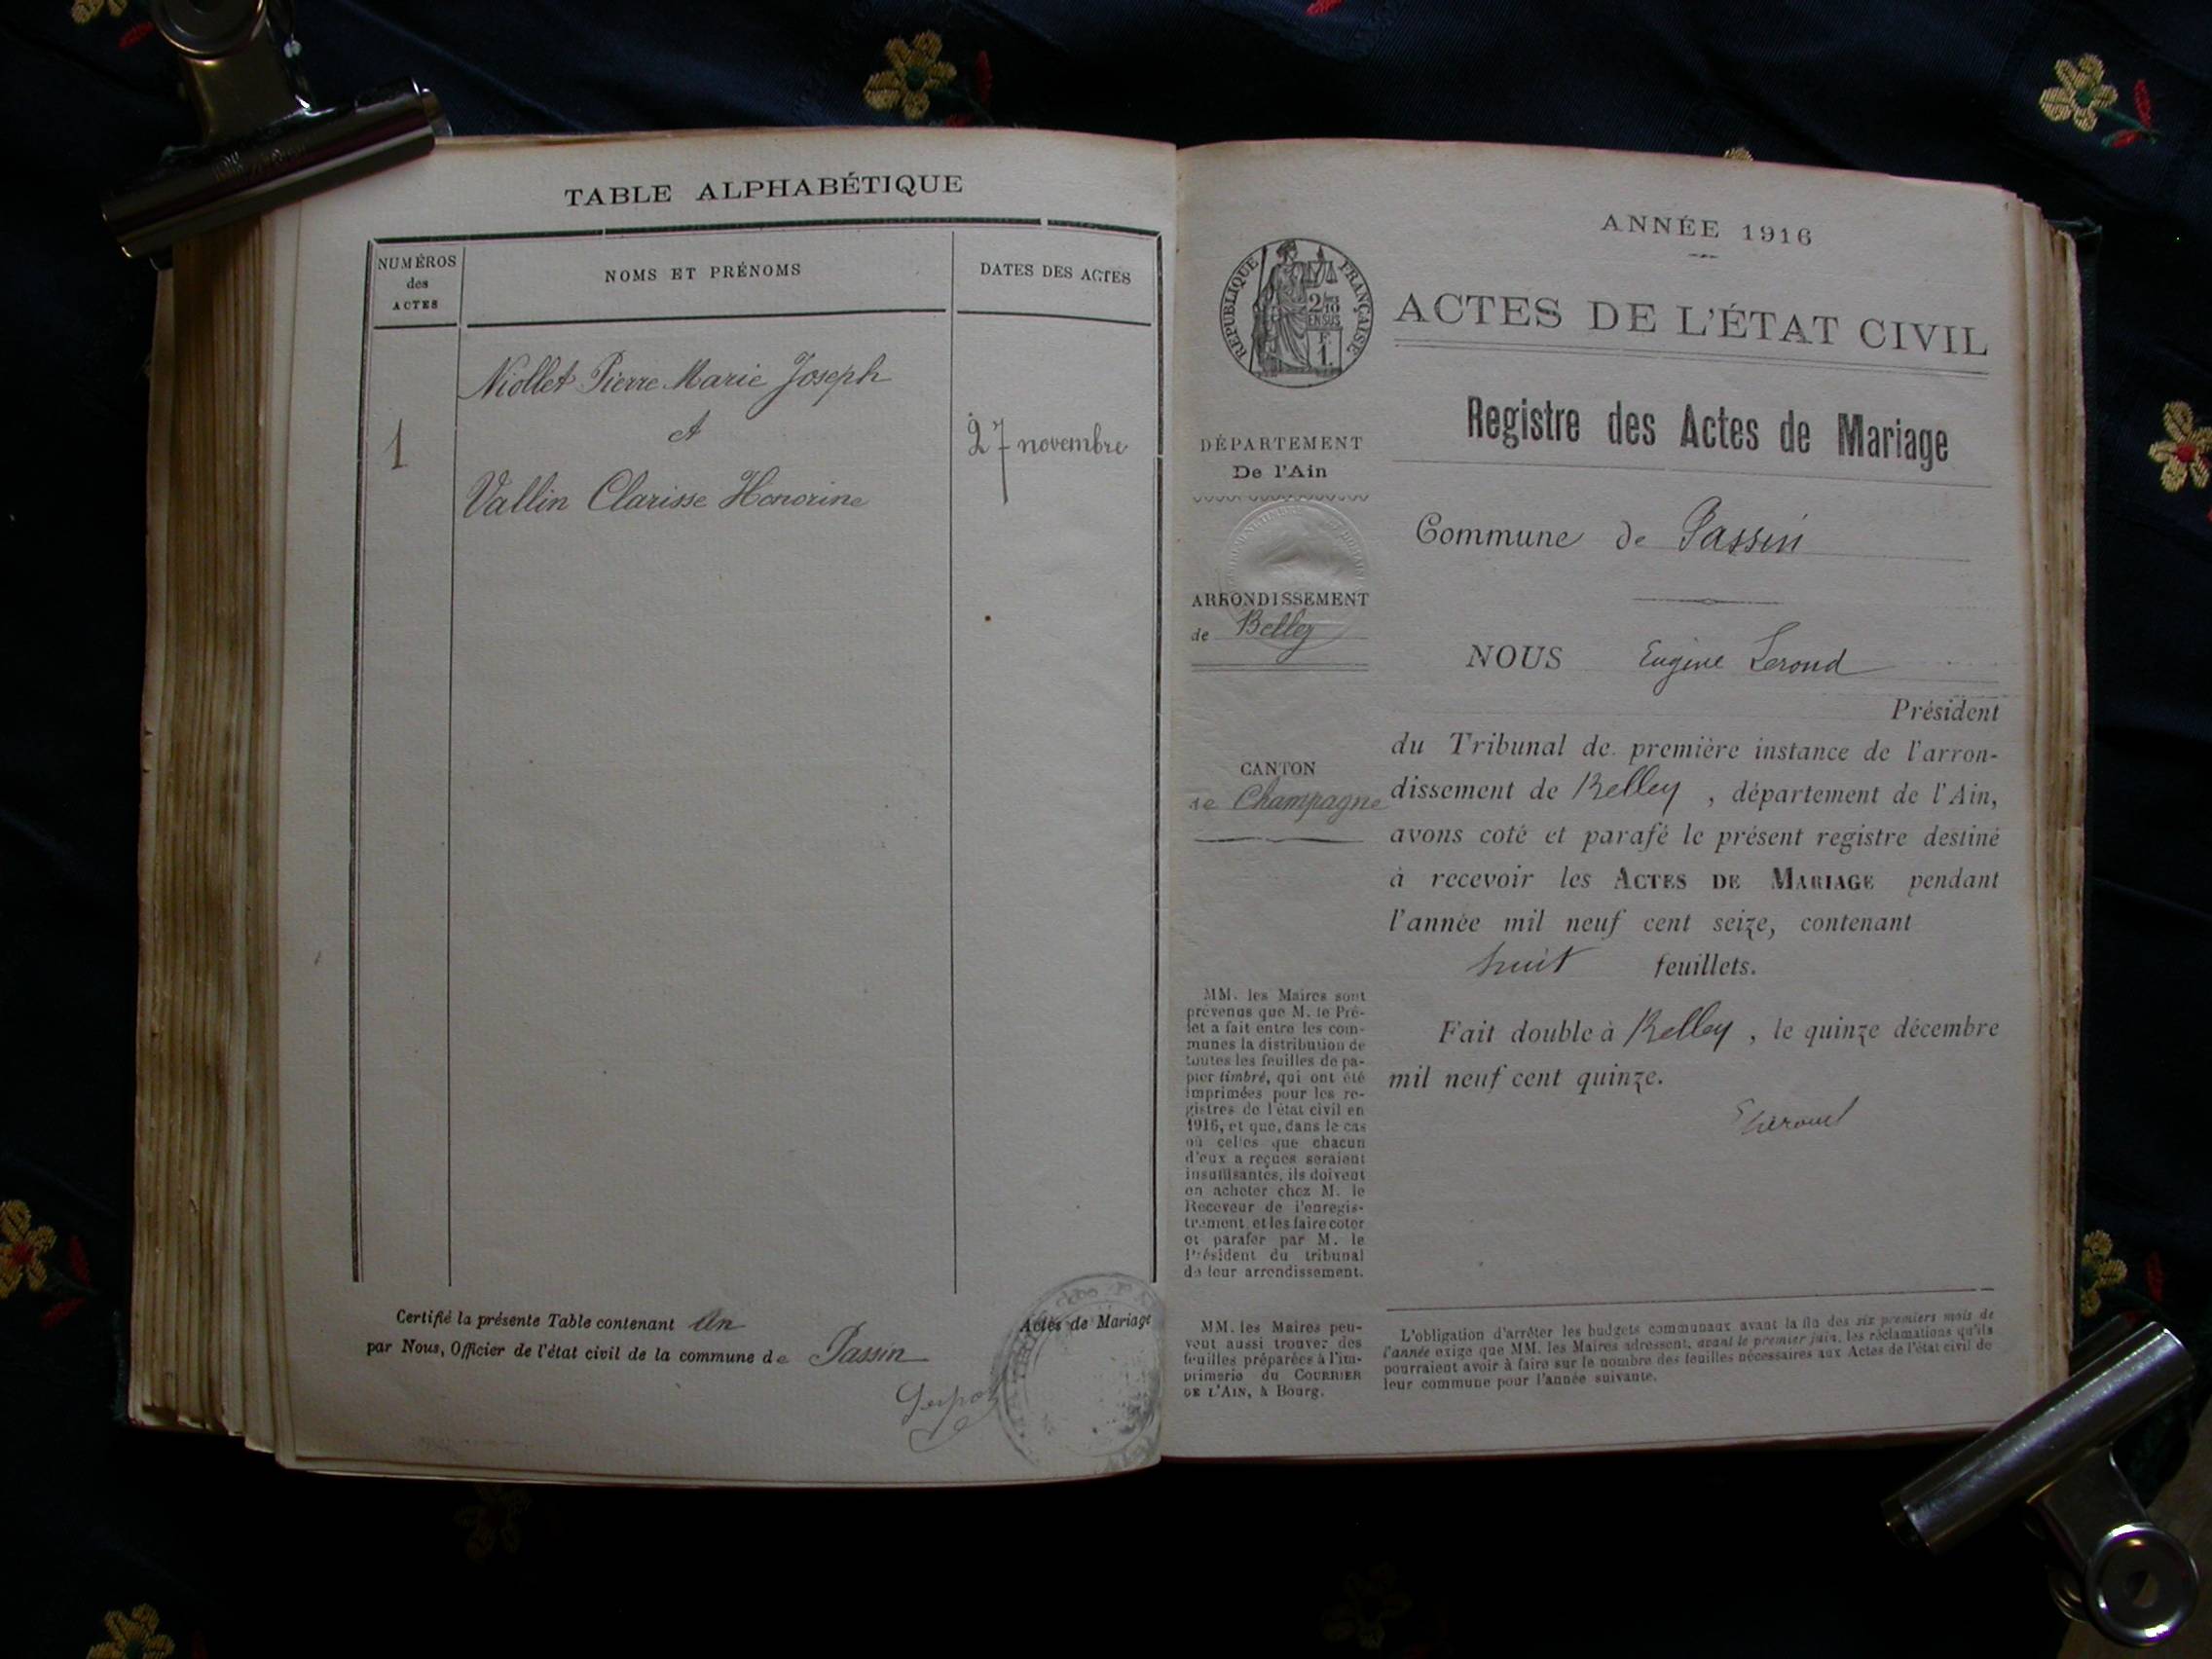 TABLE ALPHABÉTIQUE
NUMÉROS
des
ACTES
NOMS ET PRÉNOMS
DATES DES ACTES
Niollet Pierre Marie Joseph
et
1
27 novembre
Vallin Clarisse Honorine
Certifié la présente Table contenant un Actes de Mariage
par Nous, Officier de l'état civil de la commune de Passin
ANNÉE 1916
RÉPUBLIQUE FRANÇAISE
2/10
EN SUS
1.
ACTES DE L'ÉTAT CIVIL
Registre des Actes de Mariage
DÉPARTEMENT
De l'Ain
Commune de Passin
ARRONDISSEMENT
de Belley
NOUS Eugène Lerond
Président
du Tribunal de première instance de l'arron-
dissement de Belley, département de l'Ain,
avons coté et parafé le présent registre destiné
à recevoir les ACTES DE MARIAGE pendant
l'année mil neuf cent seize, contenant
huit feuillets.
Fait double à Belley, le quinze décembre
mil neuf cent quinze.
CANTON
de Champagne
MM. les Maires sont
prévenus que M. le Pré-
fet a fait entre les com-
munes la distribution de
toutes les feuilles de pa-
pier timbré, qui ont été
imprimées pour les re-
gistres de l'état civil en
1916, et que, dans le cas
où celles que chacun
d'eux a reçues seraient
insuffisantes, ils doivent
en acheter chez M. le
Receveur de l'enregis-
trement, et les faire coter
et parafer par M. le
Président du tribunal
de leur arrondissement.
MM. les Maires peu-
vent aussi trouver des
feuilles préparées à l'im-
primerie du COURRIER
DE L'AIN, à Bourg.
L'obligation d'arrêter les budgets communaux avant la fin des six premiers mois de
l'année exige que MM. les Maires adressent, avant le premier juin, les réclamations qu'ils
pourraient avoir à faire sur le nombre des feuilles nécessaires aux Actes de l'état civil de
leur commune pour l'année suivante.